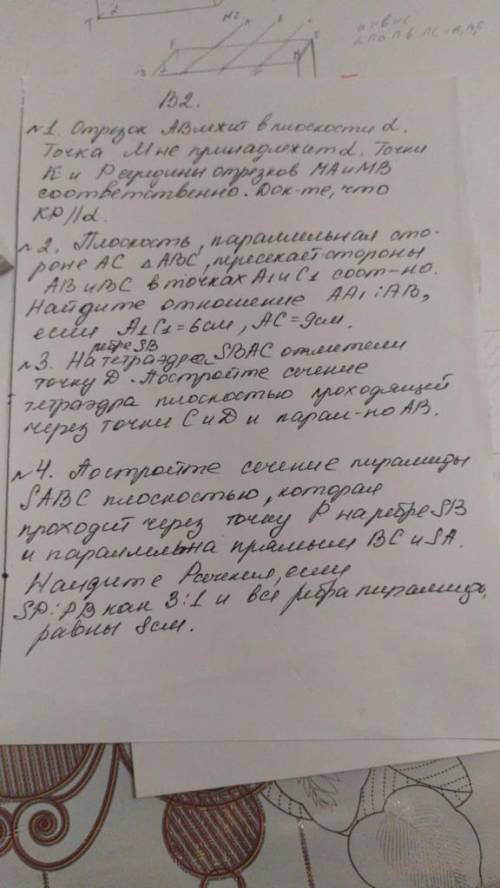 N2
В2.
N1. Отрезок АВ лежит в плоскости α.
Точка М не принадлежит α. Точки
К и Р середины отрезков МА и МВ
соответственно. Док-те, что
КР || α.
N2. Плоскость, параллельная сто-
роне АС △АВС, пересекает стороны
АВ и ВС в точках А1 и С1 соот-но.
Найдите отношение АА1 : АВ,
если А1С1 = 6 см, АС = 9 см.
ребре SB
N3. На тетраэдра SBAC отметили
точку D. Постройте сечение
тетраэдра плоскостью проходящей
через точки С и D и парал-но АВ.
N4. Постройте сечение пирамиды
SABC плоскостью, которая
проходит через точку Р на ребре SB
и параллельна прямым ВС и SA.
Найдите Рсечения, если
SP : PB как 3:1 и все ребра пирамиды
равны 8 см.